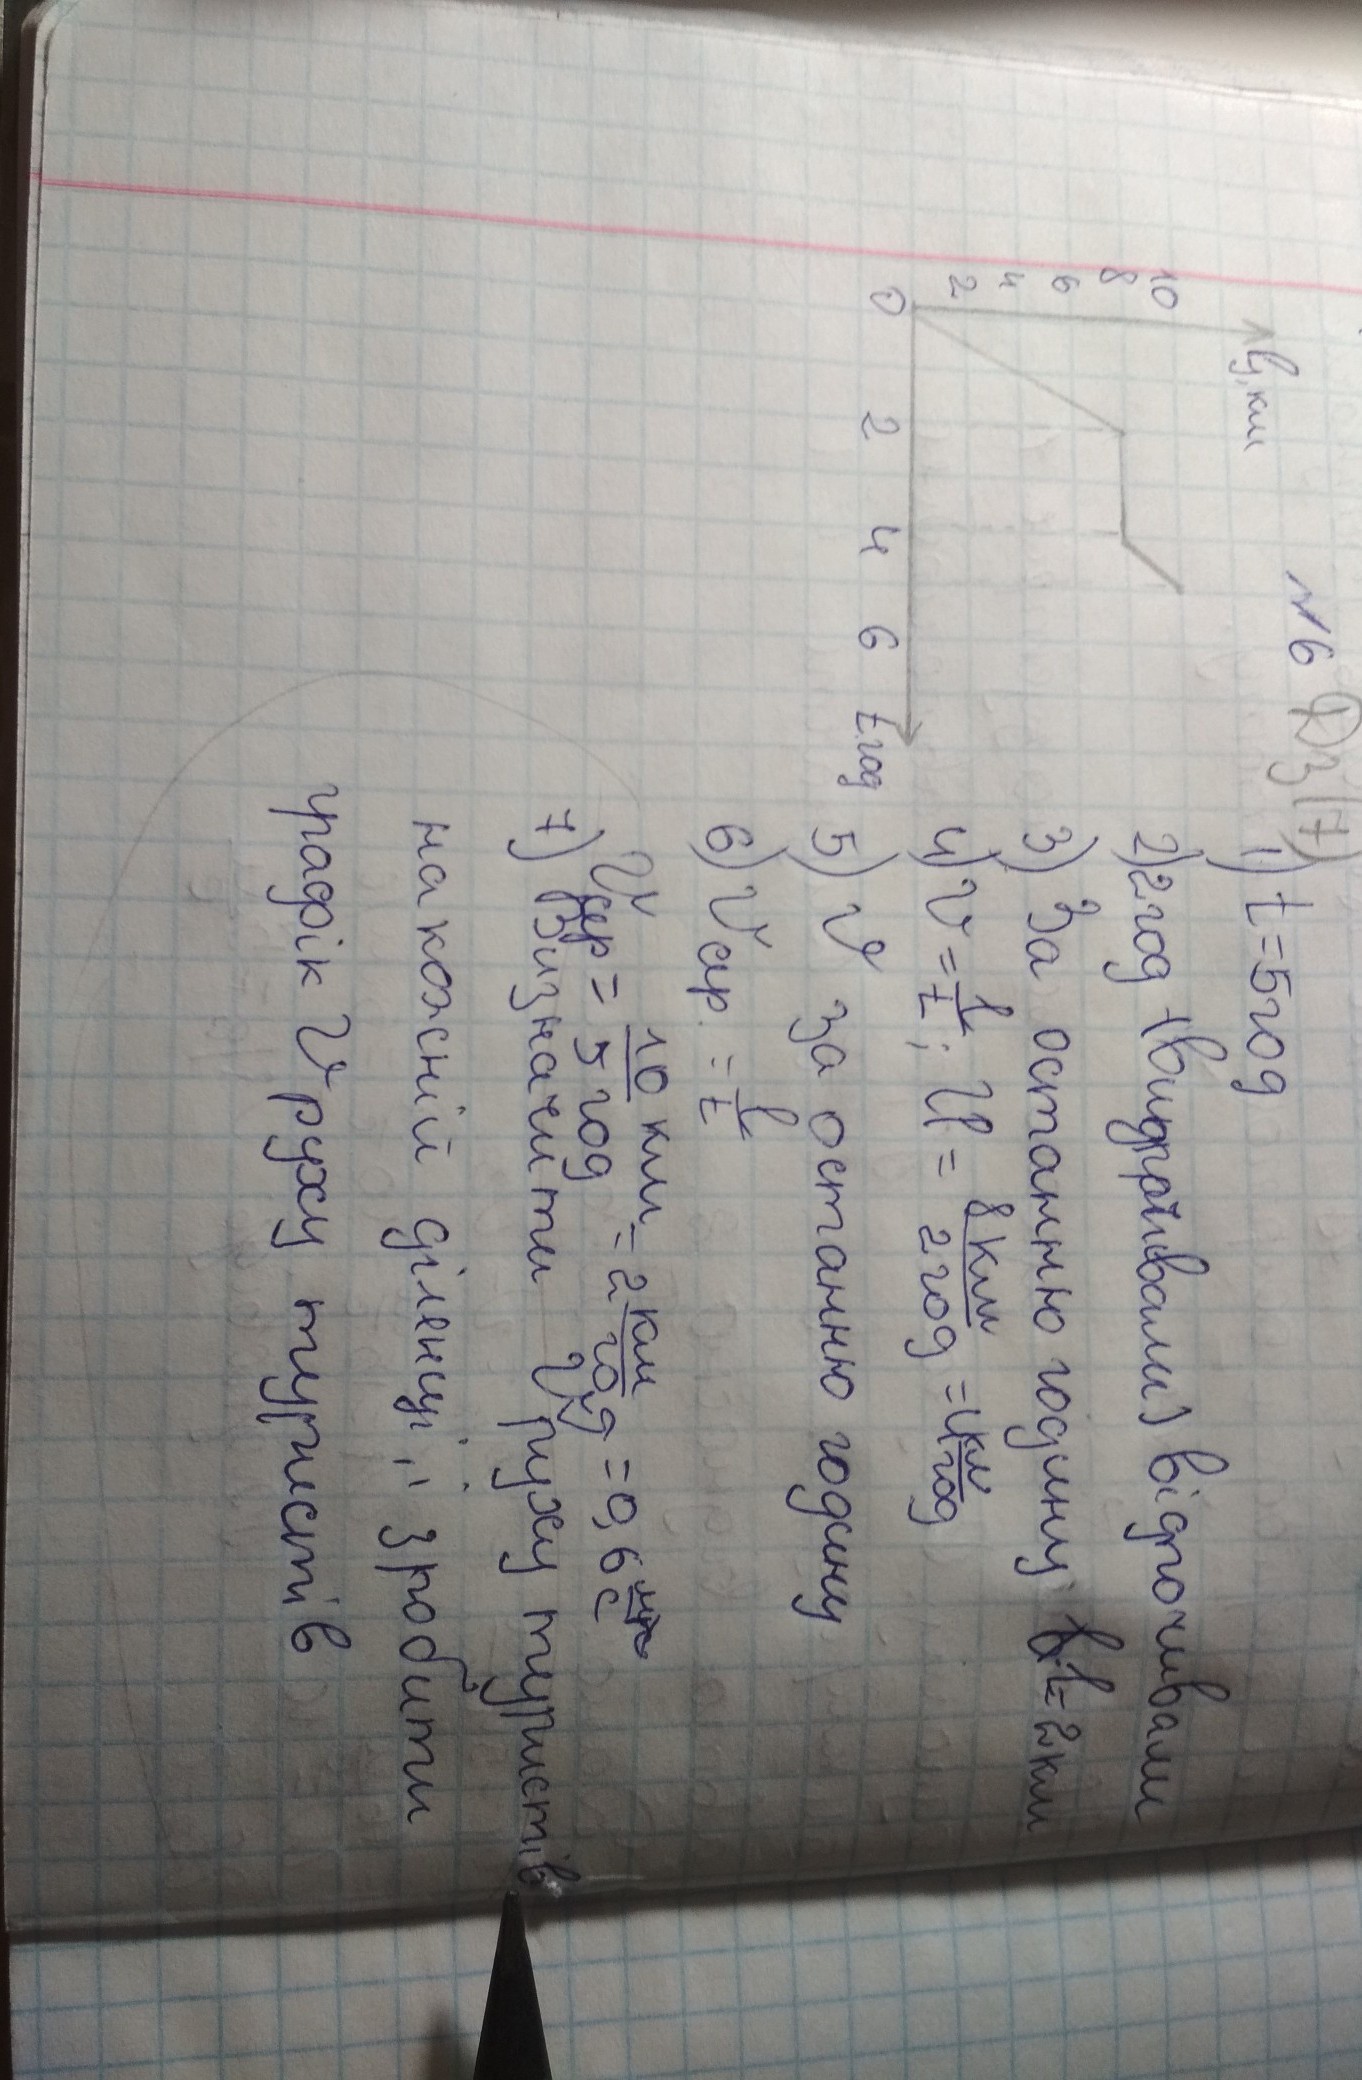 №6 ДЗ(7)
l, км
10
8
6
4
2
0
2 4 6 t, год
1) t=5год
2) 2год відпочивали
3) За останню годину l=2км
4) V = l/t; V = 8км/2год = 4 км/год
5) V за останню годину
6) Vср. = l/t
Vсер = 10км/5год = 2 км/год = 0,6 м/с
7) Визначити V руху туристів
на кожній ділянці, і зробити
графік V руху туристів